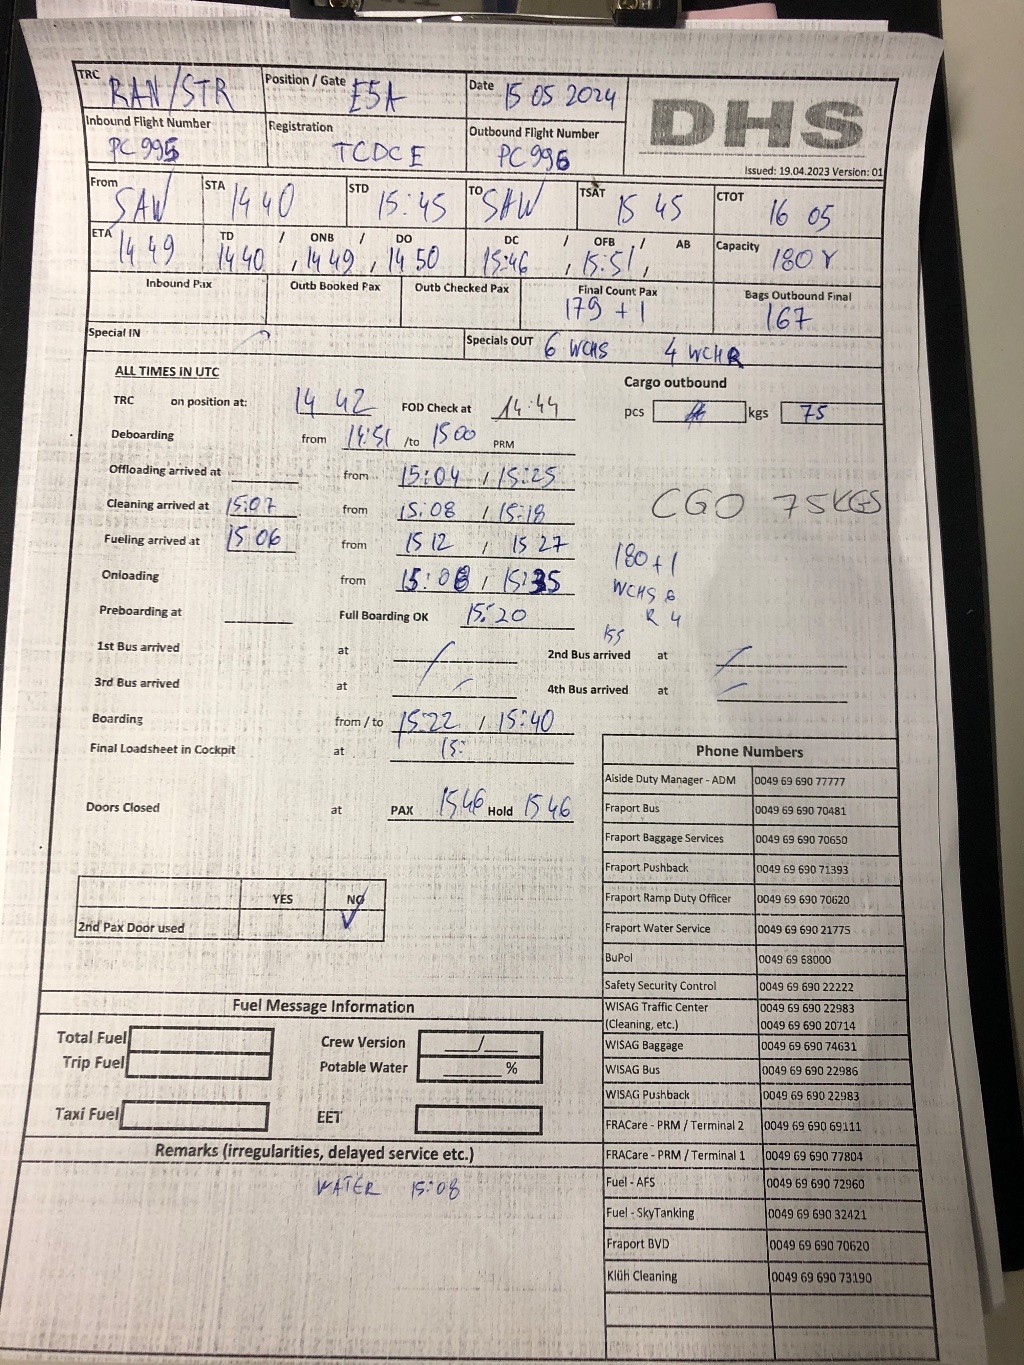 TRC RAN/STR Position / Gate E5A Date 15 05 2024
DHS
Inbound Flight Number PC 995 Registration TCDCE Outbound Flight Number PC 996
Issued: 19.04.2023 Version: 01
From SAW STA 14 40 STD 15:45 TO SAW TSAT 15 45 CTOT 16 05
ETA 14 49 TD / ONB / DO 14 40 , 14 49 , 14 50 DC / OFB / AB 15:46 , 15:51 , Capacity 180 Y
Inbound Pax Outb Booked Pax Outb Checked Pax Final Count Pax 179 + 1 Bags Outbound Final 167
Special IN Specials OUT 6 WCHS 4 WCHR
ALL TIMES IN UTC
Cargo outbound
TRC on position at: 14 42 FOD Check at 14:44
pcs kgs 75
Deboarding from 14:51 /to 15 00 PRM
Offloading arrived at from 15:04 / 15:25
Cleaning arrived at 15:07 from 15:08 / 15:18
CGO 75KGS
Fueling arrived at 15 06 from 15 12 / 15 27
180 + 1
Onloading from 15:08 / 15:35
WCHS 6
R 4
Preboarding at Full Boarding OK 15:20
155
1st Bus arrived at 2nd Bus arrived at
3rd Bus arrived at 4th Bus arrived at
Boarding from / to 15:22 / 15:40
Final Loadsheet in Cockpit at 15:
Doors Closed at PAX 15 46 Hold 15 46
YES NO
2nd Pax Door used
Phone Numbers
Aiside Duty Manager - ADM 0049 69 690 77777
Fraport Bus 0049 69 690 70481
Fraport Baggage Services 0049 69 690 70650
Fraport Pushback 0049 69 690 71393
Fraport Ramp Duty Officer 0049 69 690 70620
Fraport Water Service 0049 69 690 21775
BuPol 0049 69 68000
Safety Security Control 0049 69 690 22222
WISAG Traffic Center 0049 69 690 22983
(Cleaning, etc.) 0049 69 690 20714
WISAG Baggage 0049 69 690 74631
WISAG Bus 0049 69 690 22986
WISAG Pushback 0049 69 690 22983
FRACare - PRM / Terminal 2 0049 69 690 69111
FRACare - PRM / Terminal 1 0049 69 690 77804
Fuel - AFS 0049 69 690 72960
Fuel - SkyTanking 0049 69 690 32421
Fraport BVD 0049 69 690 70620
Klüh Cleaning 0049 69 690 73190
Fuel Message Information
Total Fuel Crew Version ____/____
Trip Fuel Potable Water ______ %
Taxi Fuel EET
Remarks (irregularities, delayed service etc.)
WATER 15:08